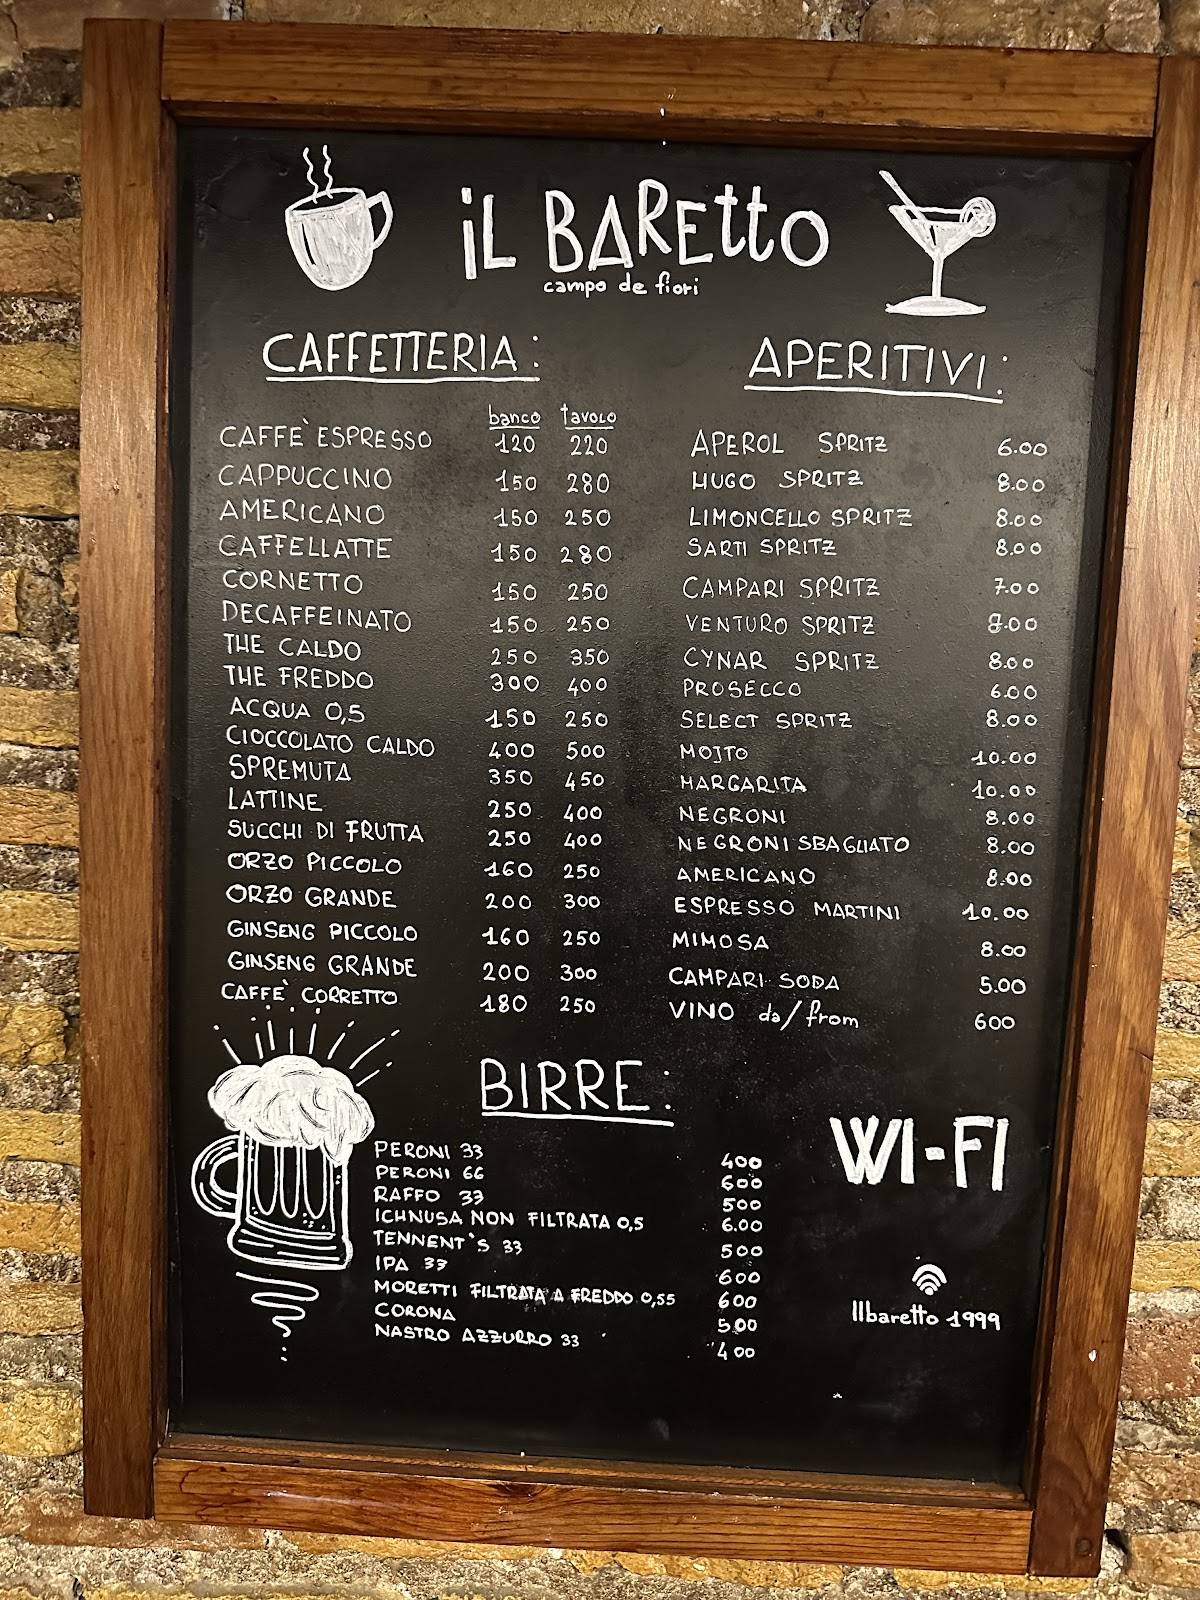 iL BARETTO
campo de fiori
CAFFETTERIA:
banco tavolo
CAFFÈ ESPRESSO 120 220
CAPPUCCINO 150 280
AMERICANO 150 250
CAFFELLATTE 150 280
CORNETTO 150 250
DECAFFEINATO 150 250
THE CALDO 250 350
THE FREDDO 300 400
ACQUA 0,5 150 250
CIOCCOLATO CALDO 400 500
SPREMUTA 350 450
LATTINE 250 400
SUCCHI DI FRUTTA 250 400
ORZO PICCOLO 160 250
ORZO GRANDE 200 300
GINSENG PICCOLO 160 250
GINSENG GRANDE 200 300
CAFFÈ CORRETTO 180 250
APERITIVI:
APEROL SPRITZ 6.00
HUGO SPRITZ 8.00
LIMONCELLO SPRITZ 8.00
SARTI SPRITZ 8.00
CAMPARI SPRITZ 7.00
VENTURO SPRITZ
CYNAR SPRITZ 8.00
PROSECCO 6.00
SELECT SPRITZ 8.00
MOJTO 10.00
MARGARITA 10.00
NEGRONI 8.00
NEGRONI SBAGLIATO 8.00
AMERICANO 8.00
ESPRESSO MARTINI 10.00
MIMOSA 8.00
CAMPARI SODA 5.00
VINO da/from 600
BIRRE:
PERONI 33 400
PERONI 66 600
RAFFO 33 500
ICHNUSA NON FILTRATA 0,5 6.00
TENNENT'S 33 500
IPA 33 600
MORETTI FILTRATA A FREDDO 0,55 600
CORONA 500
NASTRO AZZURRO 33 400
WI-FI
Ilbaretto 1999